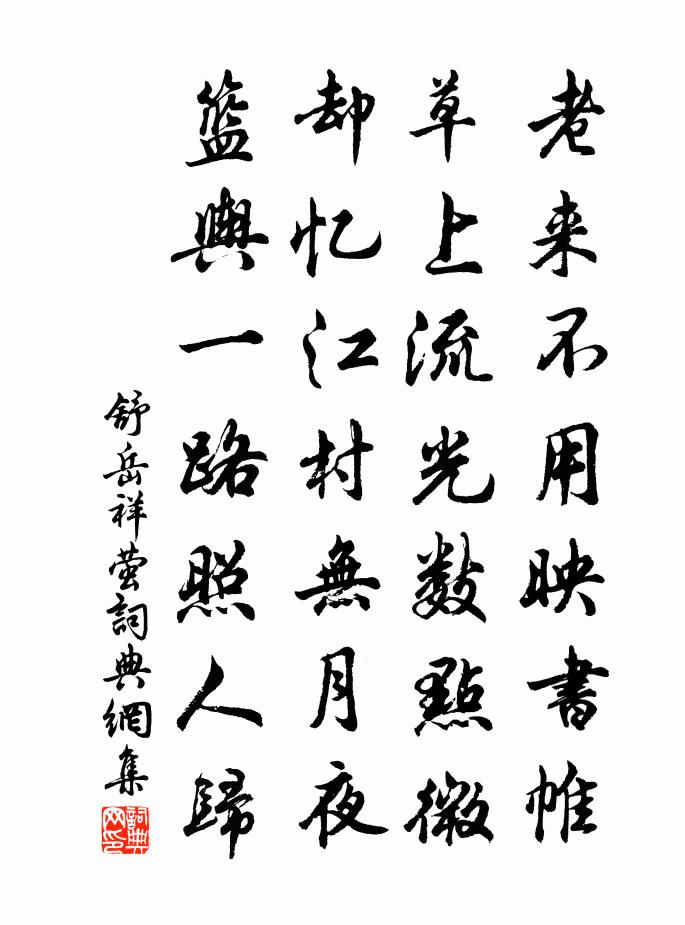 老来不用映書帷
草上流光数點微
却忆江村無月夜
籃輿一路照人歸
舒岳祥萤詞典網集
詞典网印